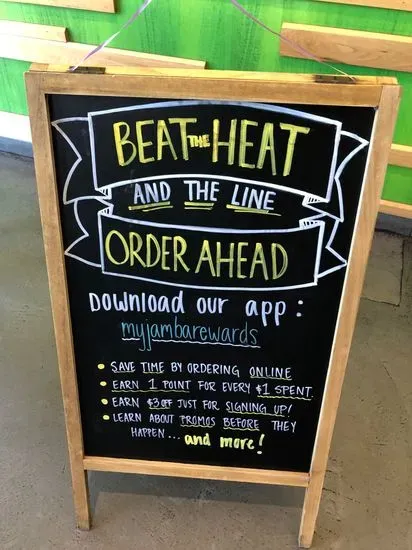 BEAT THE HEAT
AND THE LINE
ORDER AHEAD
DOWNLOAD OUR APP:
myjambarewards
• SAVE TIME BY ORDERING ONLINE
• EARN 1 POINT FOR EVERY $1 SPENT.
• EARN $3 OFF JUST FOR SIGNING UP!
• LEARN ABOUT PROMOS BEFORE THEY
HAPPEN... and more!